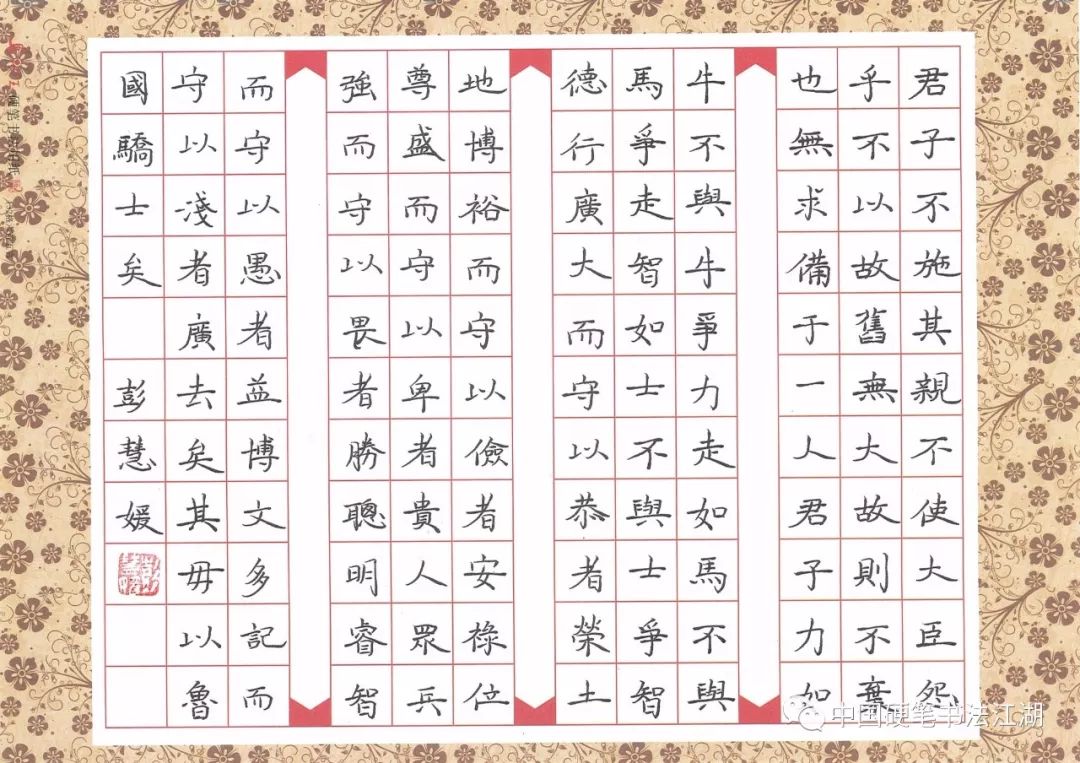 君子不施其親不使大臣怨
乎不以故舊無大故則不棄
也無求備于一人君子力如
牛不與牛爭力走如馬不與
馬爭走智如士不與士爭智
德行廣大而守以恭者榮土
地博裕而守以儉者安祿位
尊盛而守以卑者貴人眾兵
強而守以畏者勝聰明睿智
而守以愚者益博文多記而
守以淺者廣去矣其毋以魯
國驕士矣 彭慧媛
中国硬笔书法江湖